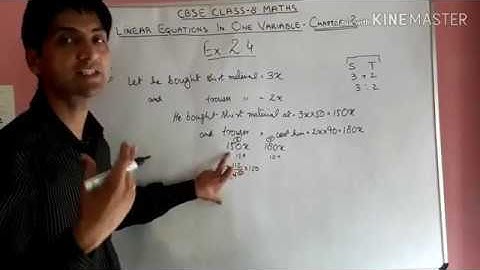 Made with KINEMASTER
CBSE CLASS-8 MATHS
LINEAR EQUATIONS IN ONE VARIABLE - CHAPTER 2
Ex 2.4
Let he bought shirt material = 3x
and trouser " = 2x
S T
3 + 2
3 : 2
He bought shirt material at = 3x×50 = 150x
and trouser " cost him = 2x×90 = 180x
150x 180x
12% 10%
112 × 150